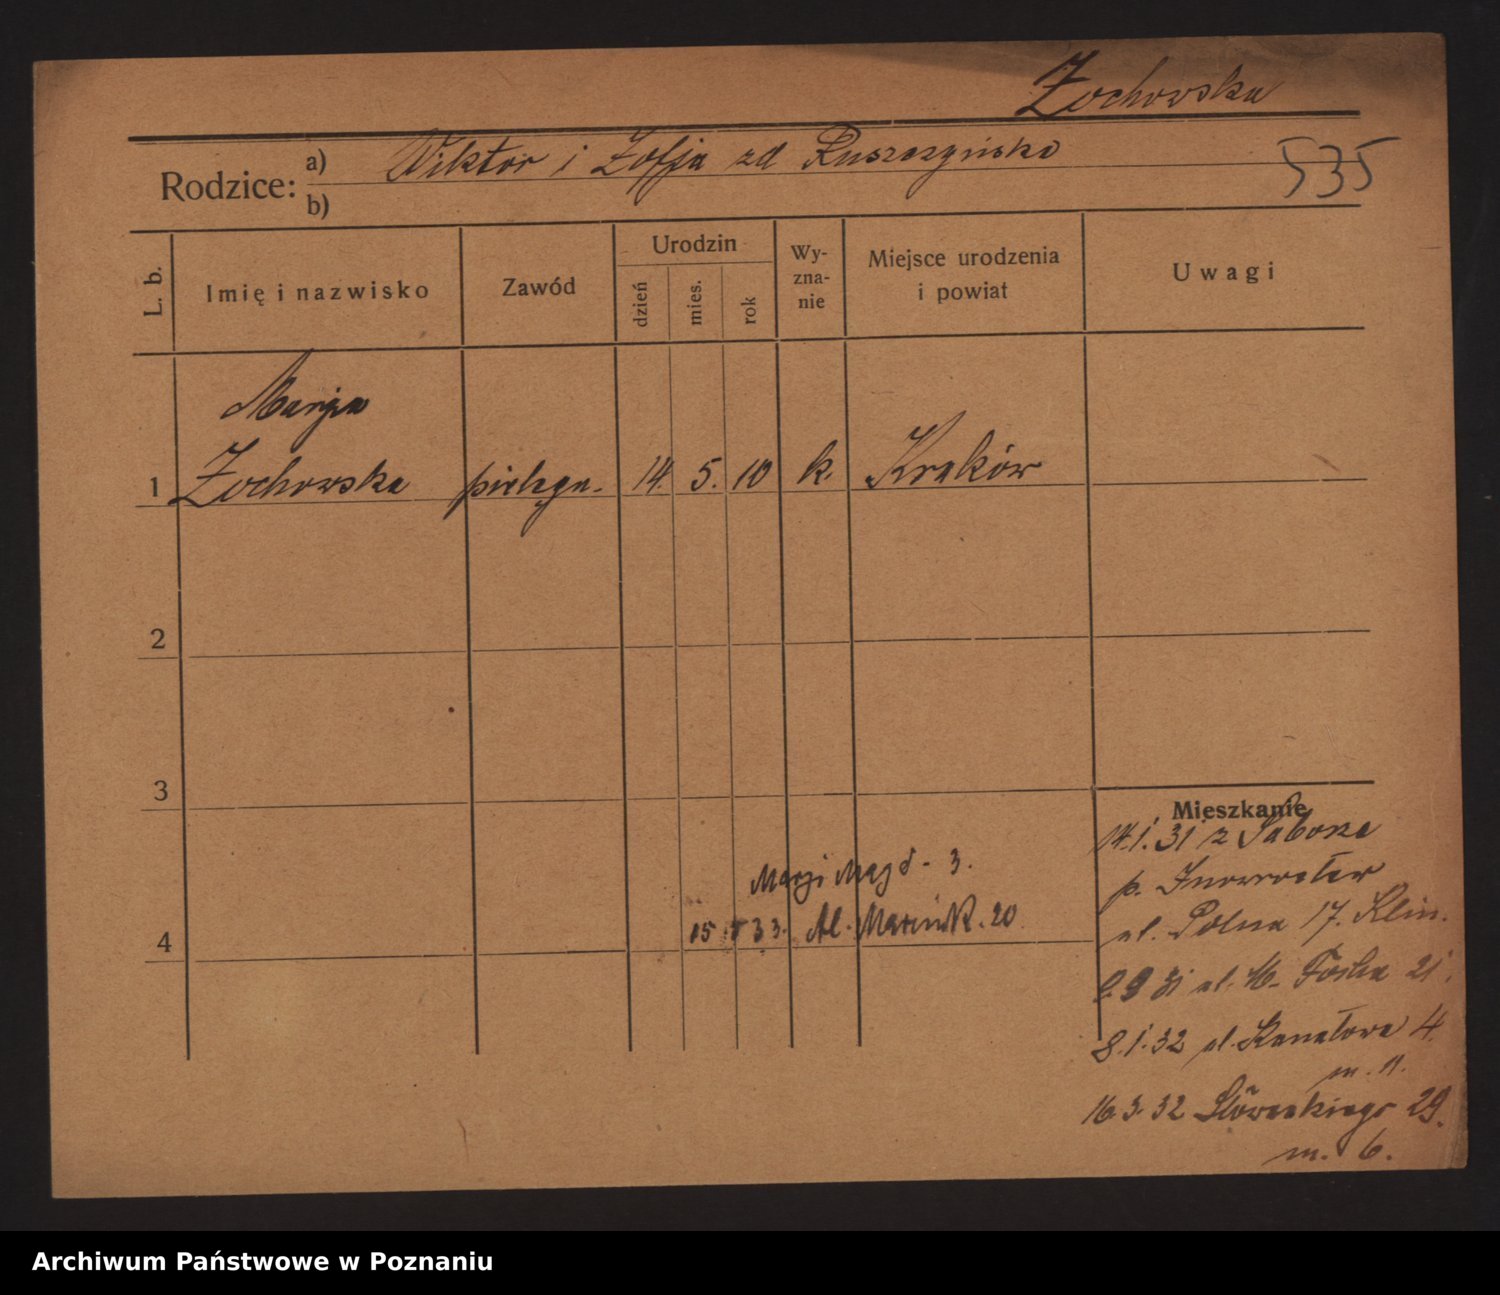 Żochowska
Rodzice: a) Wiktor i Zofja zd Ruszczyńska
b)
535
L. b. Imię i nazwisko Zawód Urodzin dzień mies. rok Wyznanie Miejsce urodzenia i powiat Uwagi
Marja
1 Żochowska pielęgn. 14. 5. 10 k. Kraków
2
3
Mieszkanie
14.1.31 z
p. Inowrocław
ul. Polna 17. Klin.
31 ul. M. Focha 21
8.1.32 ul. Kanałowa 4
m. 11.
16.3.32 Słowackiego 29.
m. 6.
Magd - 3.
15 33. Al. Marcink. 20
4
Archiwum Państwowe w Poznaniu